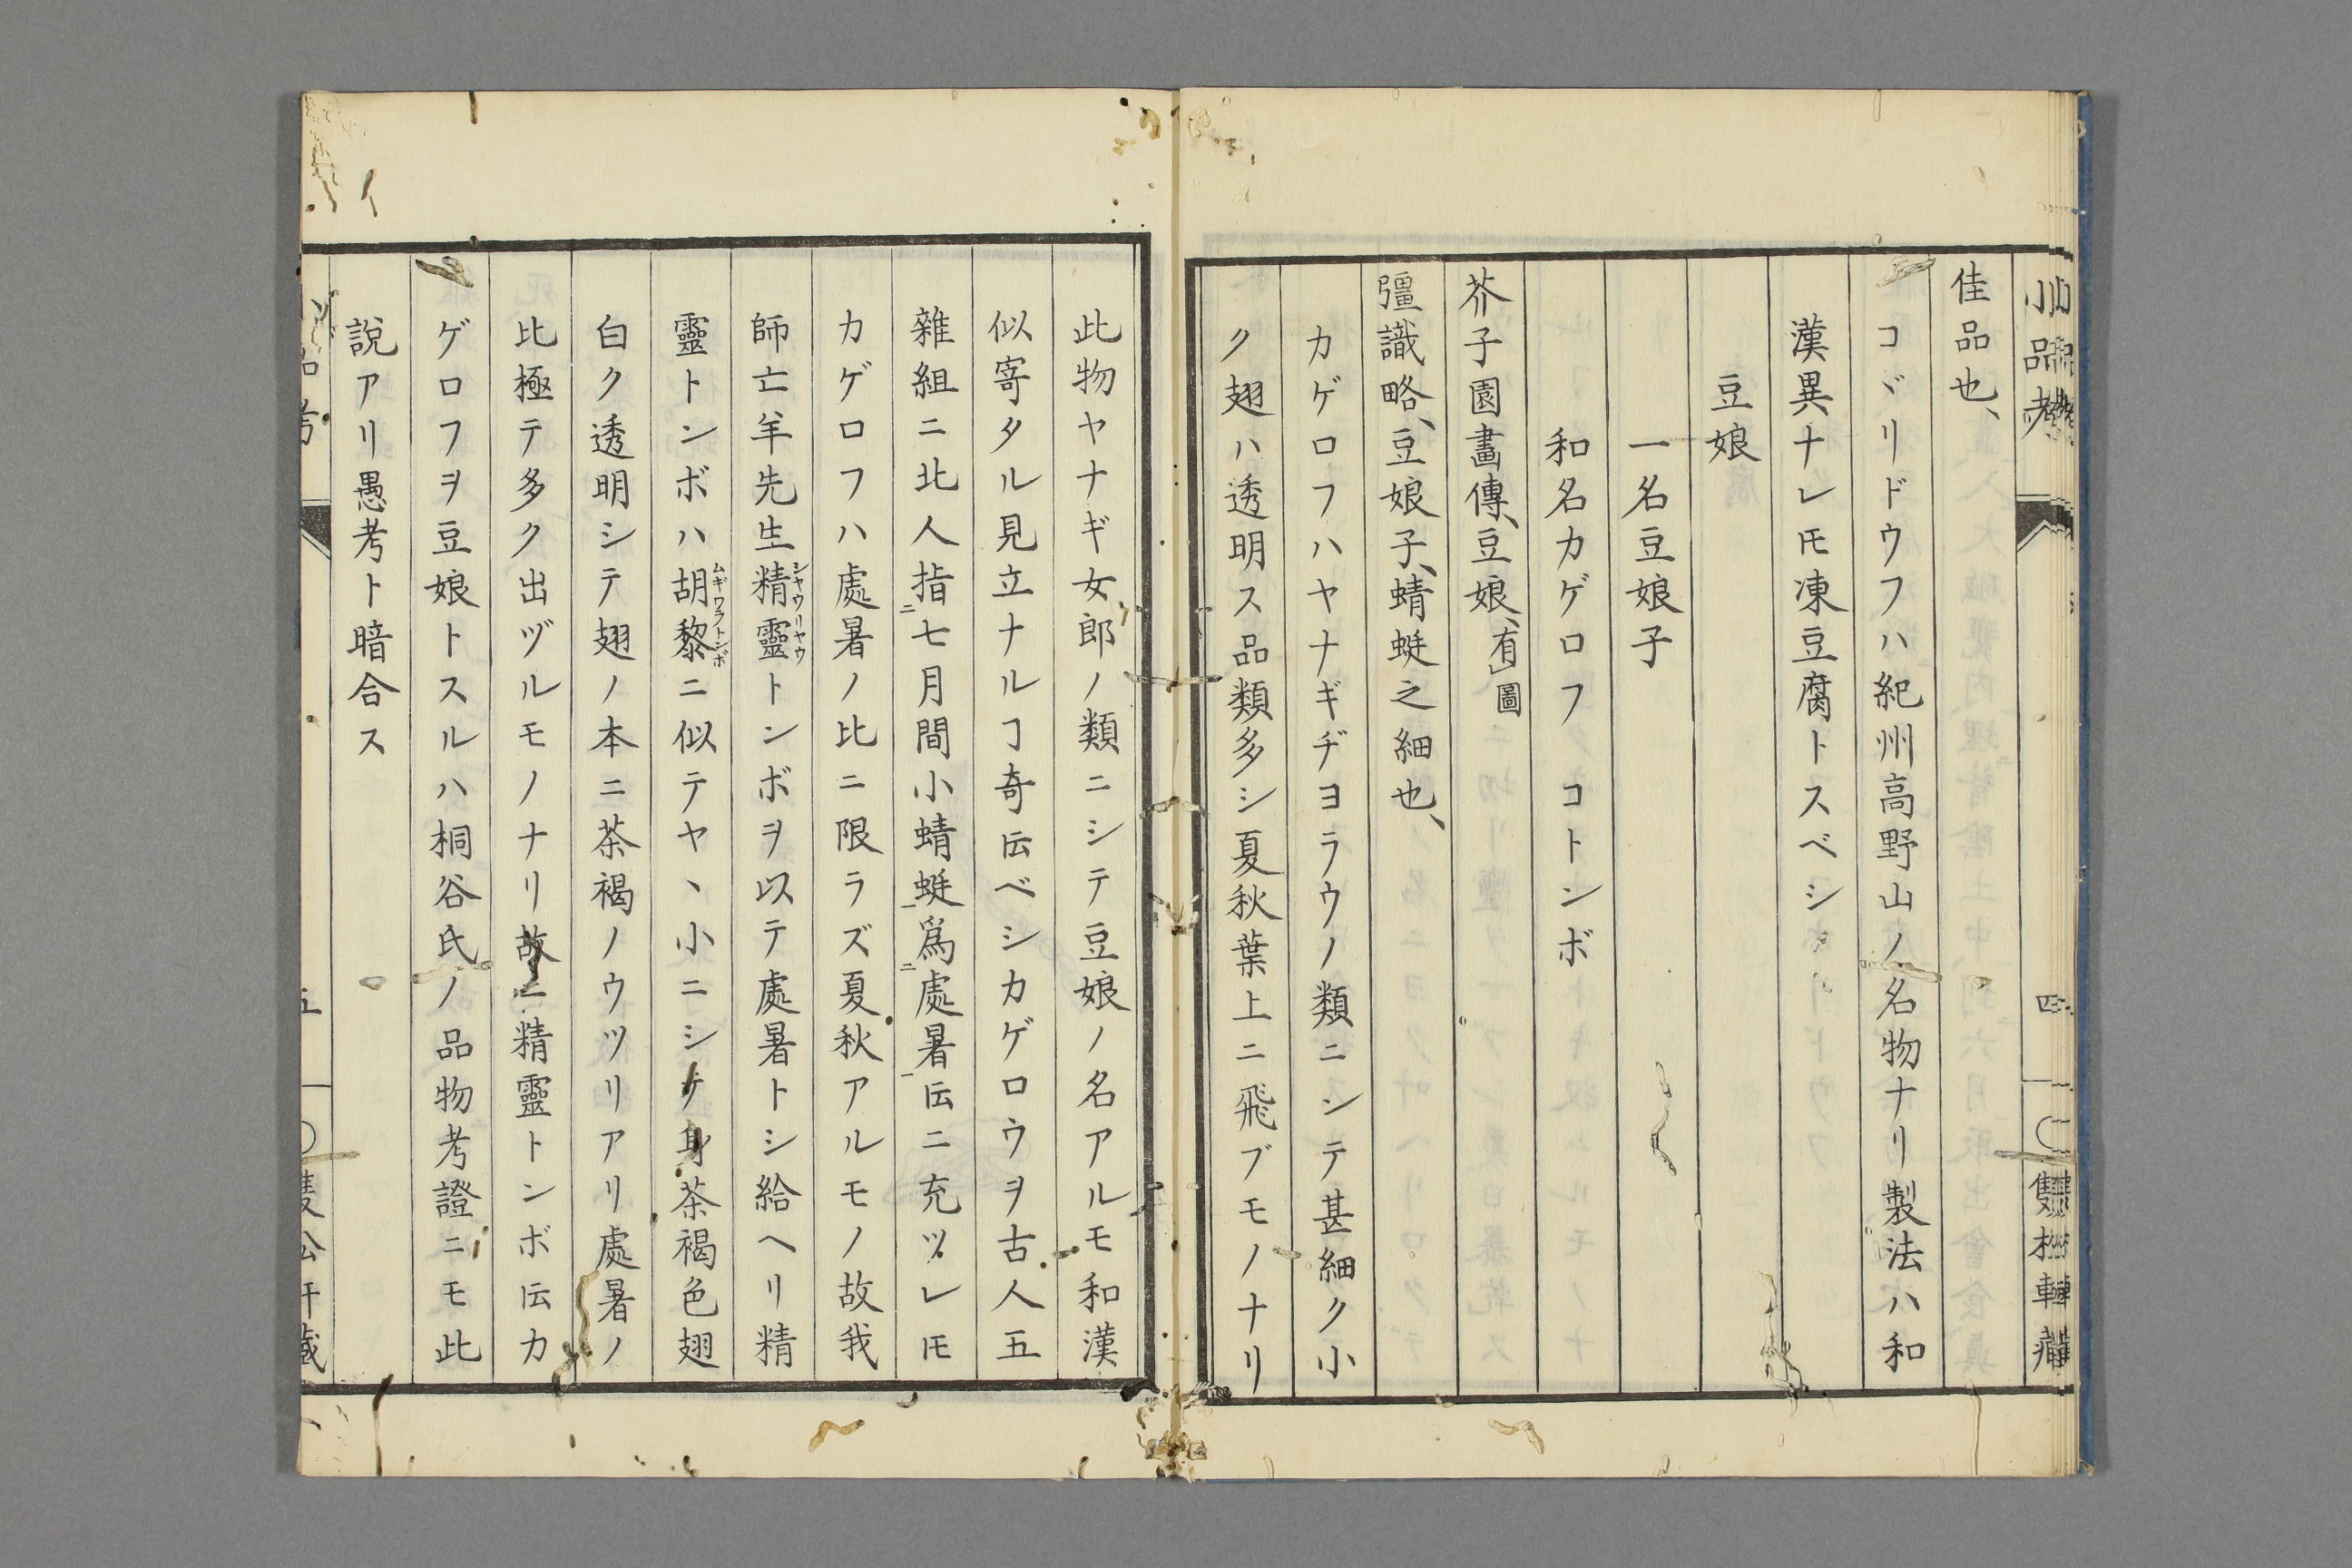 小品考
四
佳品也、
コヾリドウフハ紀州高野山ノ名物ナリ製法ハ和
漢異ナレ𪜈凍豆腐トスベシ
豆娘
一名豆娘子
和名カゲロフ コトンボ
芥子園畫傳、豆娘、有」圖
彊識略、豆娘子、蜻蜓之細也、
カゲロフハヤナギヂヨラウノ類ニシテ甚細ク小
ク翅ハ透明ス品類多シ夏秋葉上ニ飛ブモノナリ
此物ヤナギ女郎ノ類ニシテ豆娘ノ名アルモ和漢
似寄タル見立ナルヿ奇伝ベシカゲロウヲ古人五
雜組ニ北人指ニ七月間小蜻蜓一爲ニ處暑一伝ニ充ツレ𪜈
カゲロフハ處暑ノ比ニ限ラズ夏秋アルモノ故我
師亡羊先生精靈シヤウリヤウトンボヲ以テ處暑トシ給ヘリ精
靈トンボハ胡黎ムギワラトンボニ似テヤヽ小ニシテ身茶褐色翅
白ク透明シテ翅ノ本ニ茶褐ノウツリアリ處暑ノ
比極テ多ク出ヅルモノナリ故ニ精靈トンボ伝カ
ゲロフヲ豆娘トスルハ桐谷氏ノ品物考證ニモ此
說アリ愚考ト暗合ス
品考
五